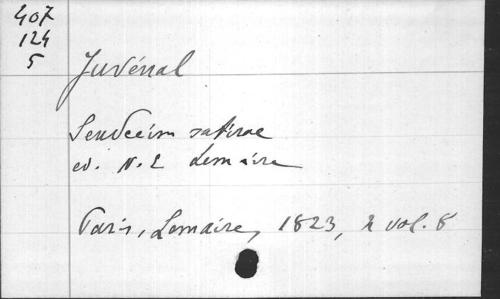 407
124
5
Juvénal
Sexdecim satirae
ed. N. E Lemaire
Paris, Lemaire, 1823, 2 vol. 8